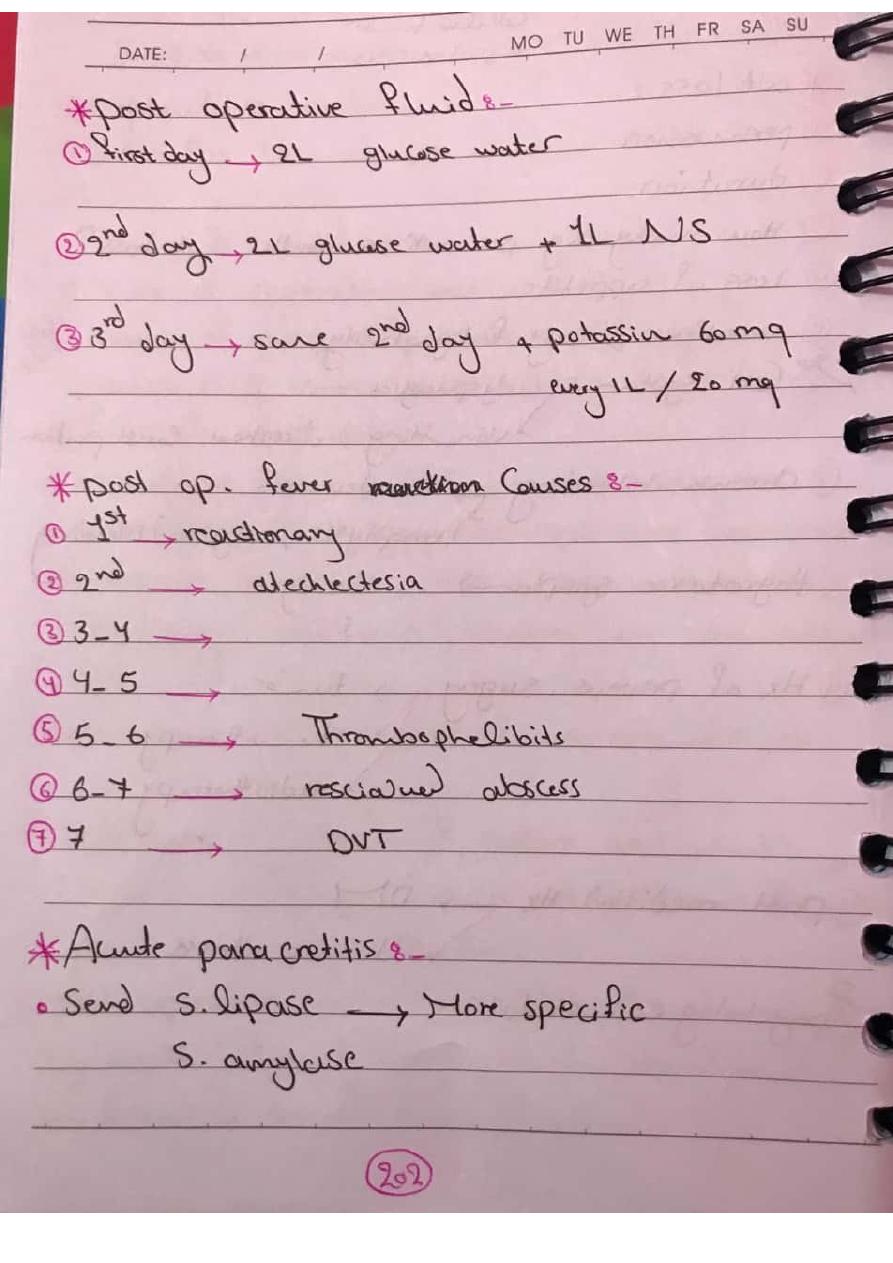 MO TU WE TH FR SA SU
DATE: / /
* post operative fluid :-
① first day → 2L glucose water
② 2nd day → 2L glucose water + 1L NS
③ 3rd day → same 2nd day + potassium 60 mq
every 1L / 20 mq
* post op. fever Causes :-
① 1st → reactionary
② 2nd → atechlectesia
③ 3-4 →
④ 4-5 →
⑤ 5-6 → Thrombophelibits
⑥ 6-7 → abscess
⑦ 7 → DVT
* Acute pancretitis :-
• Send S. lipase → More specific
S. amylase
202